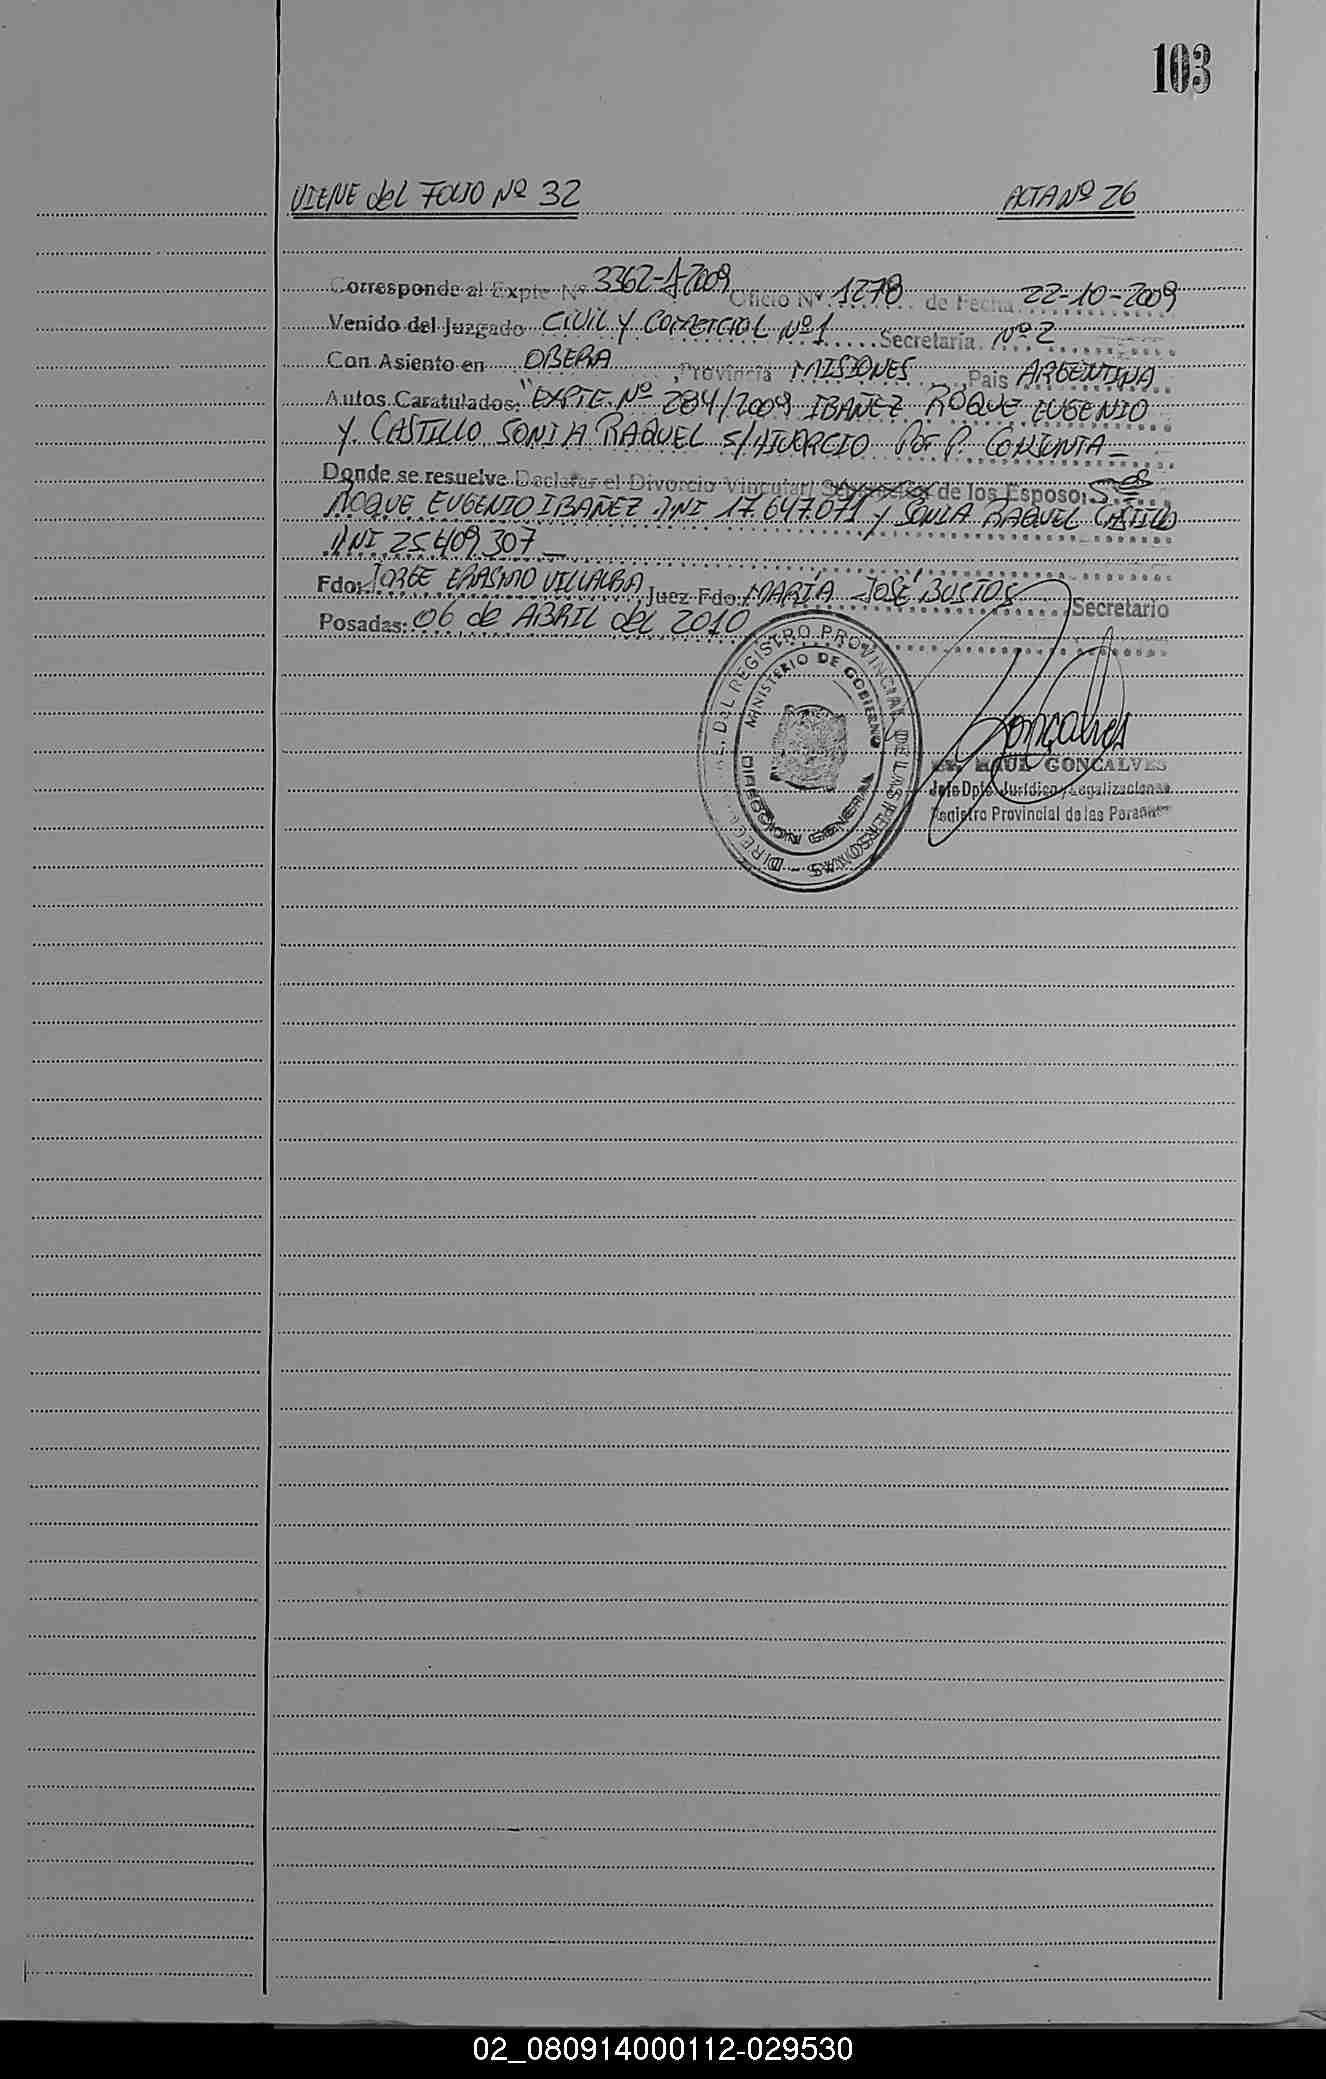 103
VIENE del FOLIO Nº 32 ACTA Nº 26
Corresponde al Expte Nº 3362-A-2009 Oficio Nº 1278 de Fecha 22-10-2009
Venido del Juzgado CIVIL Y COMERCIAL Nº 1 Secretaria Nº 2
Con Asiento en OBERA, Provincia MISIONES, Pais ARGENTINA
Autos Caratulados: "EXPTE. Nº 284/2009 IBAÑEZ ROQUE EUGENIO
Y CASTILLO SONIA RAQUEL S/DIVORCIO POR P. CONJUNTA_
Donde se resuelve Declarar el Divorcio Vincular/ de los Esposo: Sres
ROQUE EUGENIO IBAÑEZ DNI 17.647.071 y SONIA RAQUEL CASTILLO
DNI 25.409.307_
Fdo: JORGE ERASMO VILLALBA Juez Fdo: MARÍA JOSÉ BUSTOS Secretario
Posadas: 06 de ABRIL del 2010
DEL REGISTRO PROVINCIAL DE LAS PERSONAS
MINISTERIO DE GOBIERNO
DIRECCION GENERAL
Goncalves
RAUL GONCALVES
Jefe Dpto. Jurídico y Legalizaciones
Registro Provincial de las Personas
02_080914000112-029530